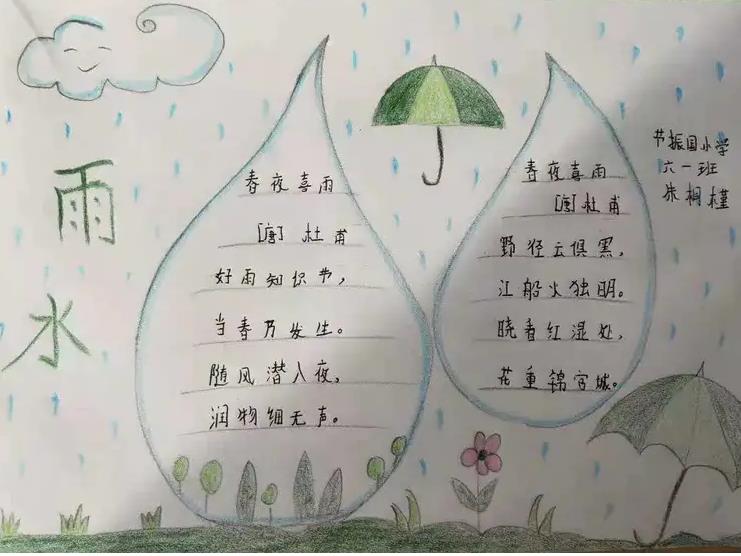 雨水
春夜喜雨
[唐]杜甫
好雨知识节，
当春乃发生。
随风潜入夜，
润物细无声。
春夜喜雨
[唐]杜甫
野径云俱黑，
江船火独明。
晓看红湿处，
花重锦宫城。
节振国小学
六一班
朱桐槿